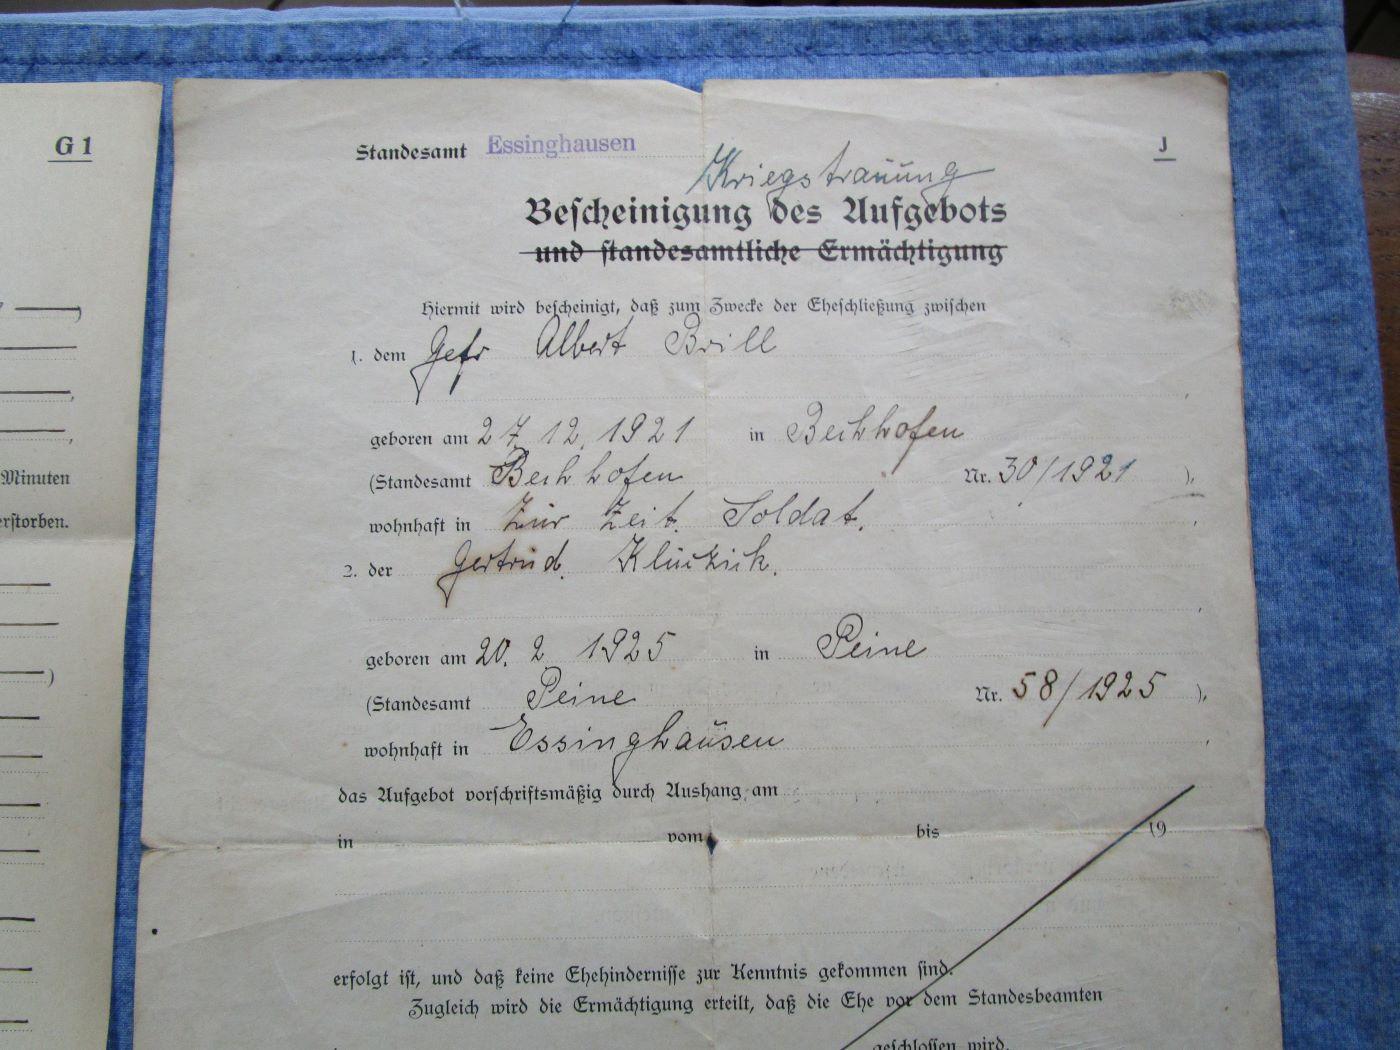 G 1
Minuten
erstorben.
Standesamt Essinghausen
J
Kriegstrauung
Bescheinigung des Aufgebots
und standesamtliche Ermächtigung
Hiermit wird bescheinigt, daß zum Zwecke der Eheschließung zwischen
1. dem Gefr Albert Brill
geboren am 27. 12. 1921 in Bechhofen
(Standesamt Bechhofen Nr. 30/1921 ),
wohnhaft in Zur Zeit. Soldat.
2. der Gertrud. Kluczick.
geboren am 20. 2. 1925 in Peine
(Standesamt Peine Nr. 58/1925 ),
wohnhaft in Essinghausen ,
das Aufgebot vorschriftsmäßig durch Aushang am
in vom bis 19
erfolgt ist, und daß keine Ehehindernisse zur Kenntnis gekommen sind.
Zugleich wird die Ermächtigung erteilt, daß die Ehe vor dem Standesbeamten
geschlossen wird.